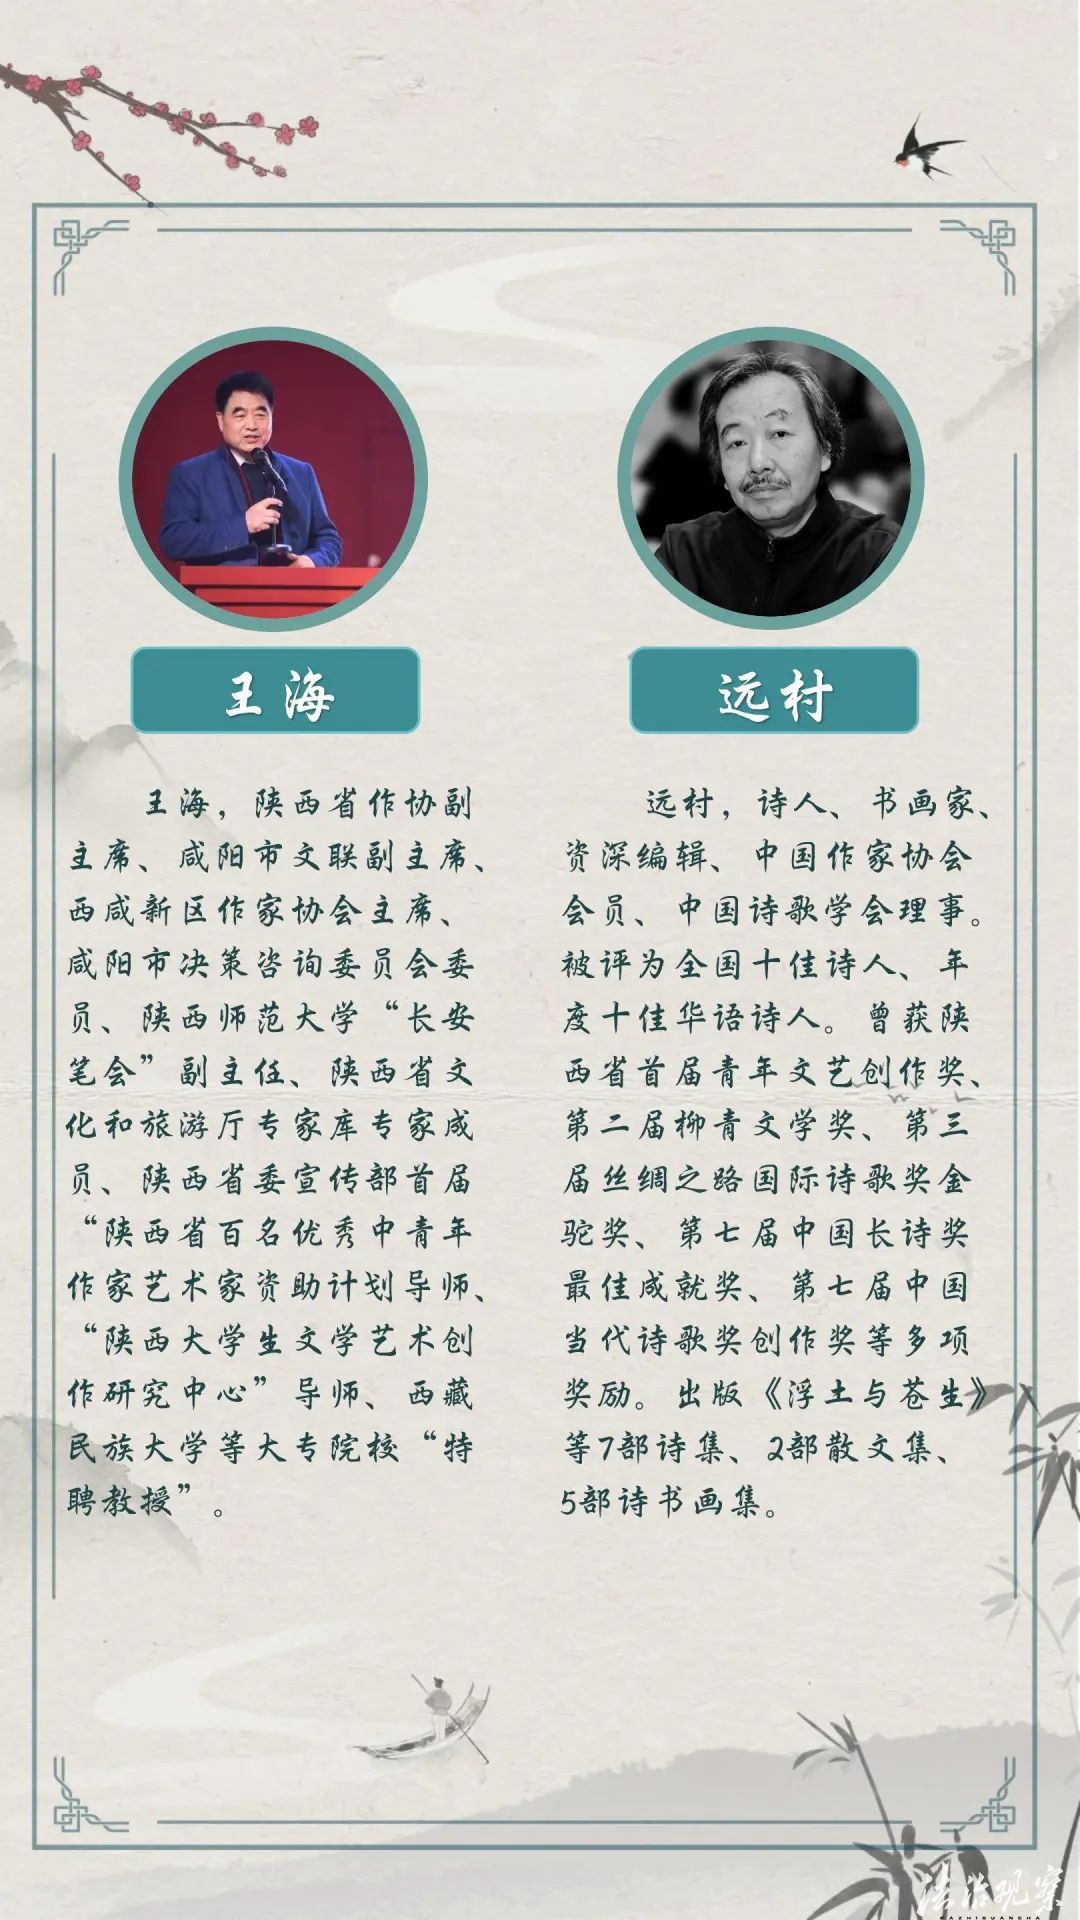 王海
王海，陕西省作协副
主席、咸阳市文联副主席、
西咸新区作家协会主席、
咸阳市决策咨询委员会委
员、陕西师范大学“长安
笔会”副主任、陕西省文
化和旅游厅专家库专家成
员、陕西省委宣传部首届
“陕西省百名优秀中青年
作家艺术家资助计划导师、
“陕西大学生文学艺术创
作研究中心”导师、西藏
民族大学等大专院校“特
聘教授”。
远村
远村，诗人、书画家、
资深编辑、中国作家协会
会员、中国诗歌学会理事。
被评为全国十佳诗人、年
度十佳华语诗人。曾获陕
西省首届青年文艺创作奖、
第二届柳青文学奖、第三
届丝绸之路国际诗歌奖金
驼奖、第七届中国长诗奖
最佳成就奖、第七届中国
当代诗歌奖创作奖等多项
奖励。出版《浮土与苍生》
等7部诗集、2部散文集、
5部诗书画集。
法治观察
FAZHIGUANCHA